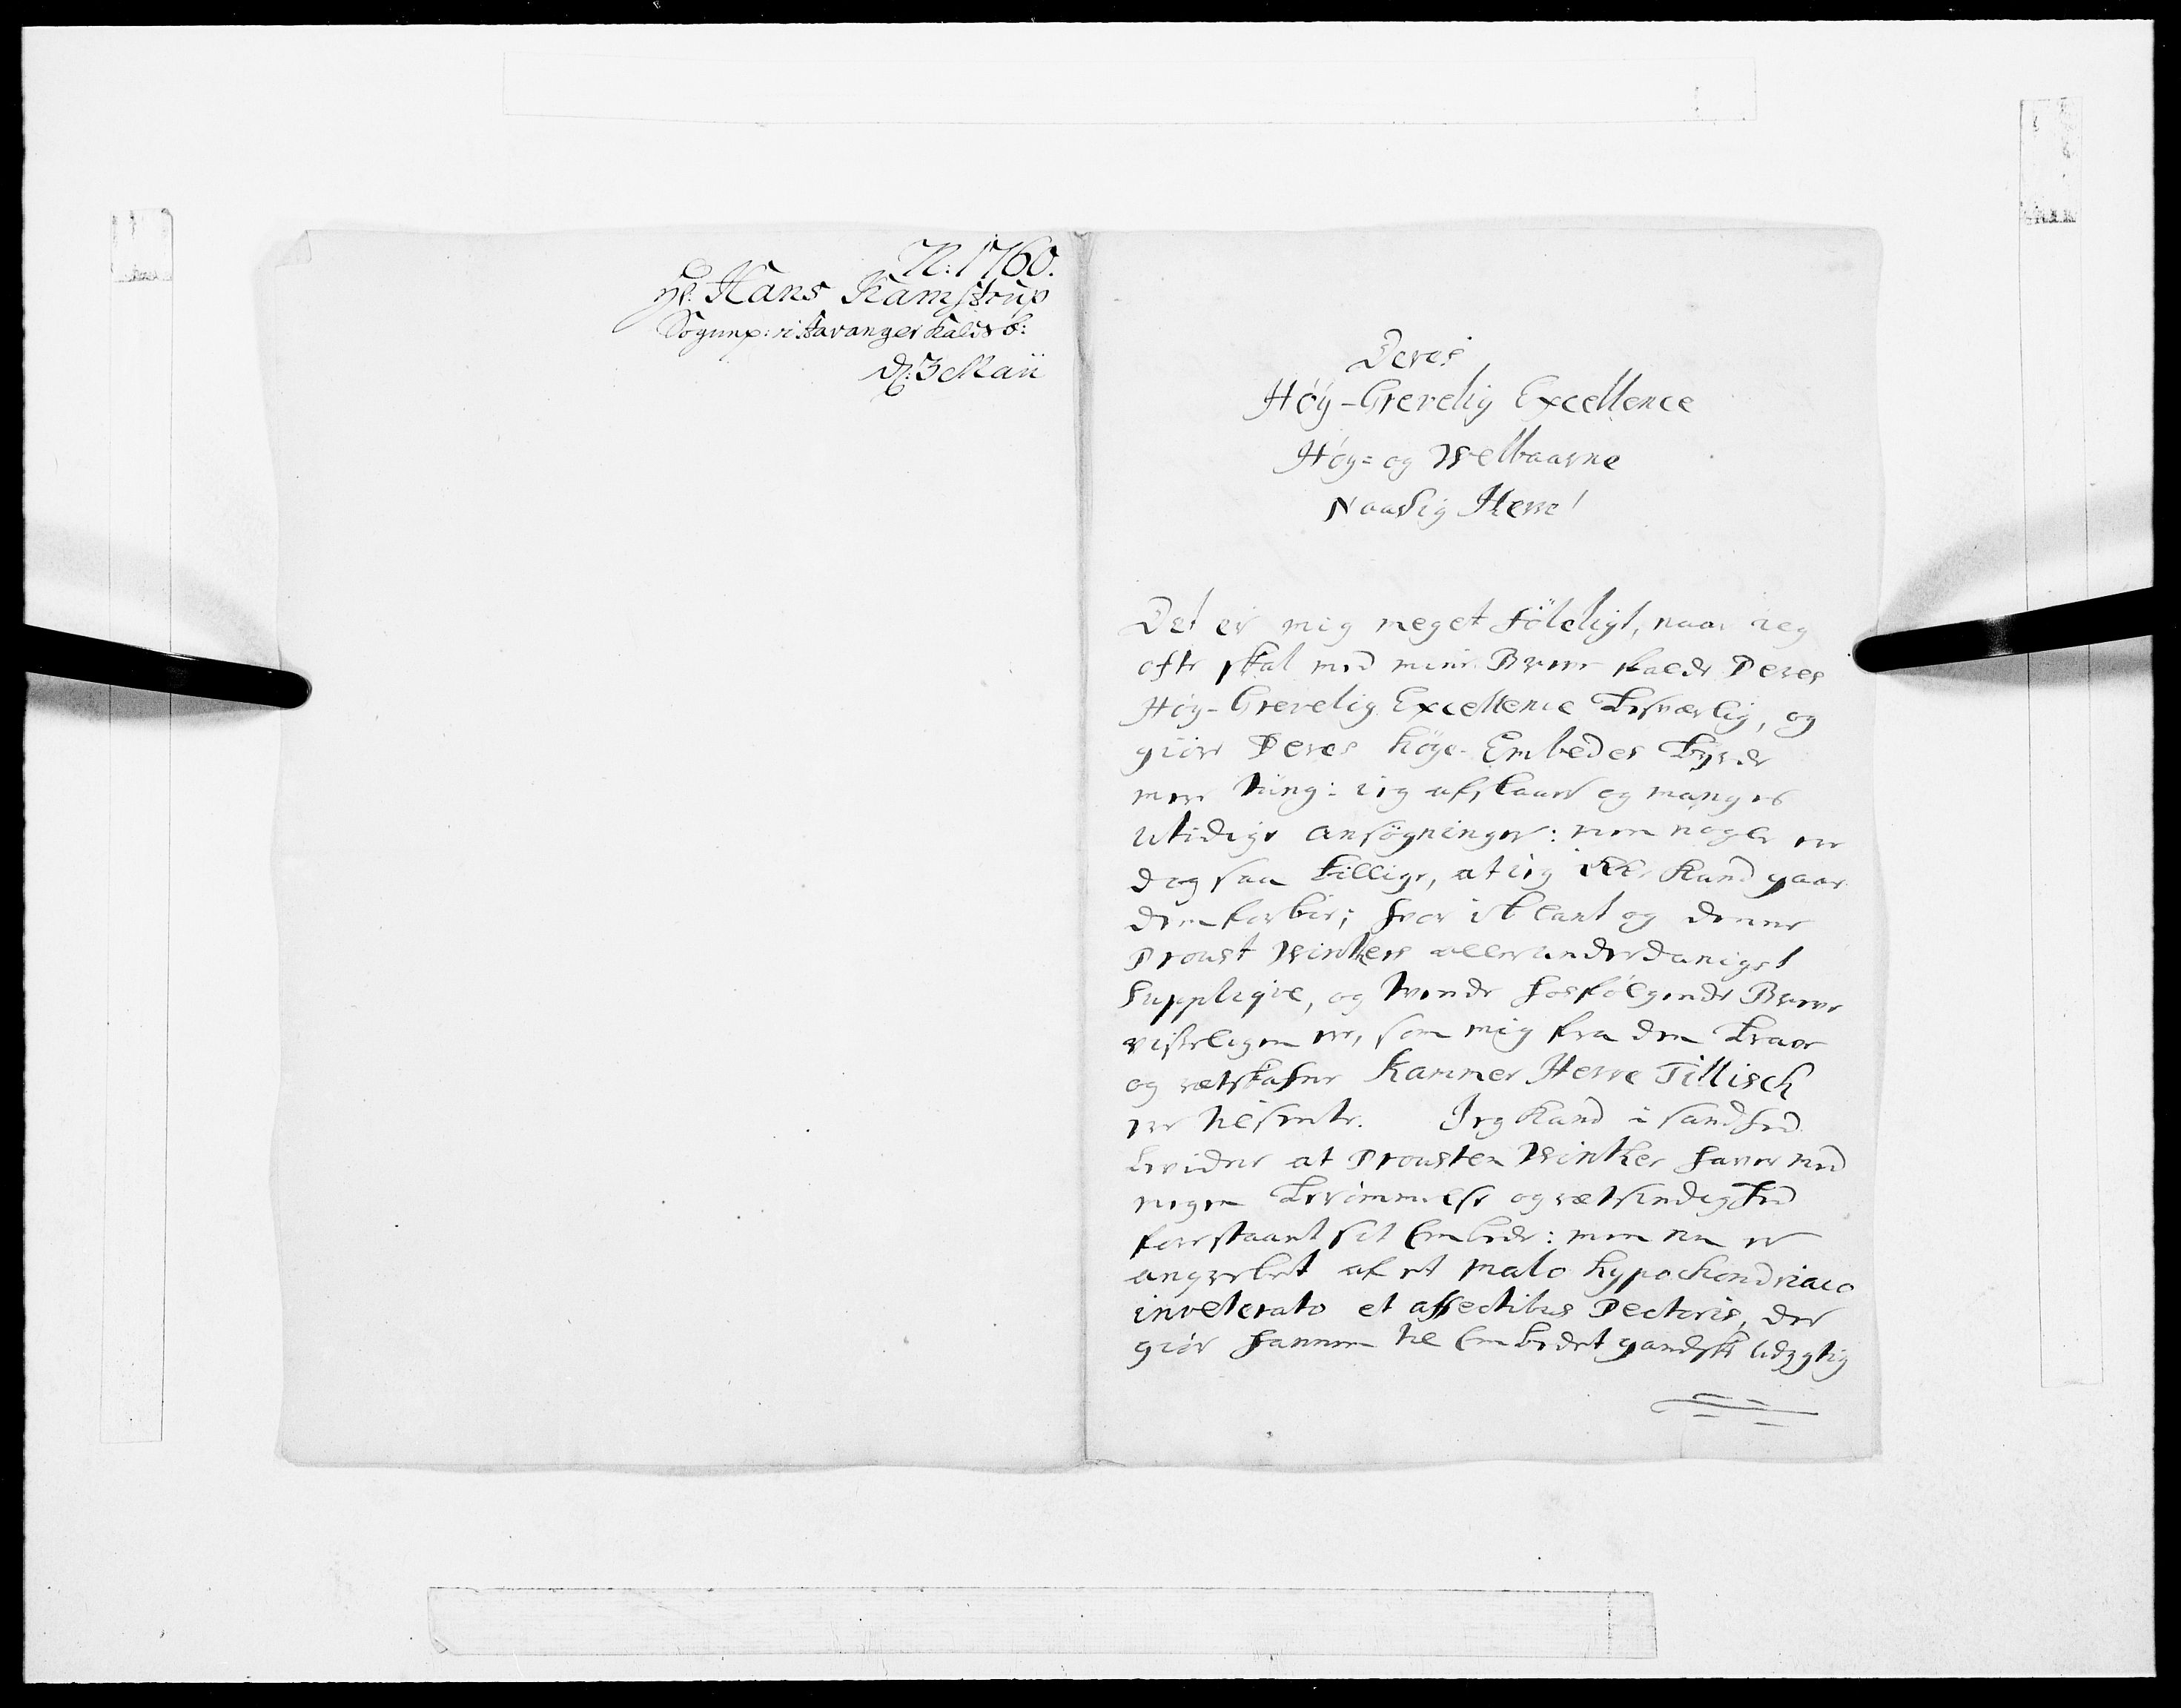 N: 1760.
Hr: Hans Kamstrup
Sognep: i Stavanger Kalds b:
d: 3 Maii
Deres
Høy-Grevelig Excellence
Høy= og Welbaarne
Naadig Herre!
Det er mig meget föleligt, naar ieg
ofte skal med mine Breve falde Deres
Høy-Grevelig Excellence besværlig, og
giøre Deres høye Embedes byrde
mere tung: ieg afslaaer og manges
utidige ansøgninger: men nogle ere
dog saa billige, at ieg ikke kand gaae
dem forbie; hvor iblant og denne
Proust Winthers allerunderdanigst
Supplique, og tvende hosfølgende Breve
visseligen ere, som mig fra den brave
og retskafne Kammer Herre Tillisch
ere tilsendte. Jeg kand i sandhed
bevidne at Prousten Winther haver med
megen berømmelse og retsindighed
forestaaet sit Embede: men nu er
angrebet af et malo hypochondriaco
inveterato et affectibus Pectoris, der
giør hannem til Embedet gandske udygtig